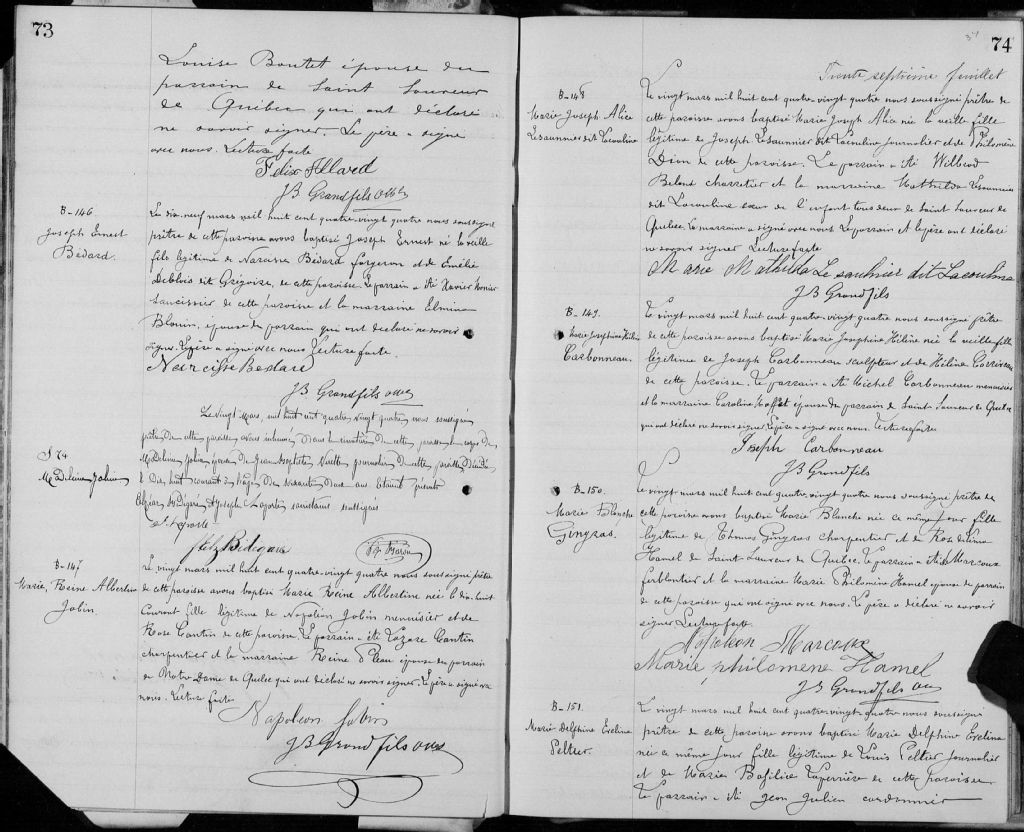 73
Louise Boutet épouse du
parrain de Saint Sauveur
de Québec qui ont déclaré
ne savoir signer. Le père a signé
avec nous. Lecture faite
Félix Allard
JB Grandfils
B-146
Joseph Ernest
Bédard.
Le dix-neuf mars mil huit cent quatre-vingt quatre nous soussigné
prêtre de cette paroisse avons baptisé Joseph Ernest né la veille
fils légitime de Narcisse Bédard forgeron et de Emélie
Deblois dit Grégoire, de cette paroisse. Le parrain a été Xavier
de cette paroisse et la marraine Elmina
Blouin, épouse du parrain qui ont déclaré ne savoir
signer. Le père a signé avec nous Lecture faite.
Narcisse Bedard
JB Grandfils
Le vingt Mars, mil huit cent quatre vingt quatre nous soussigné
prêtre de cette paroisse avons inhumé dans le cimetière de cette paroisse le corps de
S 74
Jobin
Jobin épouse de Jean-Baptiste journalier de cette paroisse décédée
le dix huit courant à l'âge de soixante douze ans. Etaient présents
Bédigaré et Joseph Laporte sacristains soussignés
Laporte
Bédegaré
B-147
Marie, Reine Albertine
Jobin
Le vingt mars mil huit cent quatre-vingt quatre nous soussigné prêtre
de cette paroisse avons baptisé Marie Reine Albertine née le dix-huit
courant fille légitime de Napoléon Jobin menuisier et de
Rose Cantin de cette paroisse Le parrain a été Lazare Cantin
charpentier et la marraine Reine épouse du parrain
de Notre Dame de Québec qui ont déclaré ne savoir signer. Le père a signé avec
nous. Lecture faite
Napoléon Jobin
JB Grandfils
74
Trente septième feuillet
B-148
Marie Joseph Alice
Lesaunnier dit Lacouline
Le vingt mars mil huit cent quatre-vingt-quatre nous soussigné prêtre de
cette paroisse avons baptisé Marie Joseph Alice née la veille fille
légitime de Joseph Lesaunnier dit Lacouline journalier et de Philomène
Dion de cette paroisse. Le parrain a été Wilbrod
charretier et la marraine Mathilda Lesaunnier
dit Lacouline sœur de l'enfant tous deux de Saint Sauveur de
Québec. La marraine a signé avec nous. Le parrain et le père ont déclaré
ne savoir signer Lecture faite
Marie Mathilda Le saulnier dit Lacouline
JB Grandfils
B-149.
Marie Joséphine Hélène
Carbonneau.
Le vingt mars mil huit cent quatre-vingt quatre nous soussigné prêtre
de cette paroisse avons baptisé Marie Josephine Hélène née la veille fille
légitime de Joseph Carbonneau sculpteur et de Hélène Corriveau
de cette paroisse. Le parrain a été Michel Carbonneau menuisier
et la marraine Caroline Moffet épouse du parrain de Saint Sauveur de Québec
qui ont déclaré ne savoir signer. Le père a signé avec nous. Lecture faite
Joseph Carbonneau
JB Grandfils
B-150.
Marie Blanche
Gingras.
Le vingt mars mil huit cent quatre-vingt quatre nous soussigné prêtre de
cette paroisse avons baptisé Marie Blanche née ce même jour fille
légitime de Thomas Gingras charpentier et de Rose de Lima
Hamel de Saint-Sauveur de Québec. Le parrain a été Marcoux
ferblantier et la marraine Marie Philomène Hamel épouse du parrain
de cette paroisse qui ont signé avec nous. Le père a déclaré ne savoir
signer Lecture faite.
Napoléon Marcoux
Marie philomene Hamel
JB Grandfils
B-151.
Marie Delphine Eveline
Peltier.
Le vingt mars mil huit cent quatre-vingt-quatre nous soussigné
prêtre de cette paroisse avons baptisé Marie Delphine Eveline
née ce même jour fille légitime de Louis Peltier journalier
et de Marie Basilice Laperrière de cette paroisse
Le parrain a été Jean Julien cordonnier